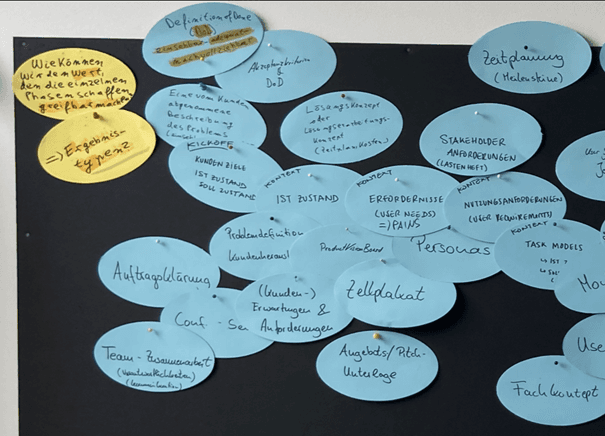 Wie können
wir den Wert,
den die einzelnen
Phasen schaffen,
greifbar machen
=> Ergebnis-
typen?
Definition of Done
Akzeptanzkriterien
& DoD
Eine vom Kunden
abgenommene
Beschreibung
des Problems
Lösungskonzept
oder
Lösungserarbeitungs-
konzept
(Zeitplan, Kosten)
Zeitplanung
(Meilensteine)
STAKEHOLDER
ANFORDERUNGEN
(LASTENHEFT)
KICKOFF
KUNDENZIELE
IST ZUSTAND
SOLL ZUSTAND
KONTEXT
IST ZUSTAND
KONTEXT
ERFORDERNISSE
(USER NEEDS)
=> PAINS
KONTEXT
NUTZUNGSANFORDERUNGEN
(USER REQUIREMENTS)
Problemdefinition
Kundenherausf
Product Vision Board
Personas
KONTEXT
TASK MODELS
→ IST ?
→ SOLL
Auftragsklärung
Conf - Sen
(Kunden-)
Erwartungen &
Anforderungen
Zielplakat
Team - Zusammenarbeit
(Verantwortlichkeiten)
(Kommunikation)
Angebots/Pitch-
Unterlage
Fachkonzept
Use